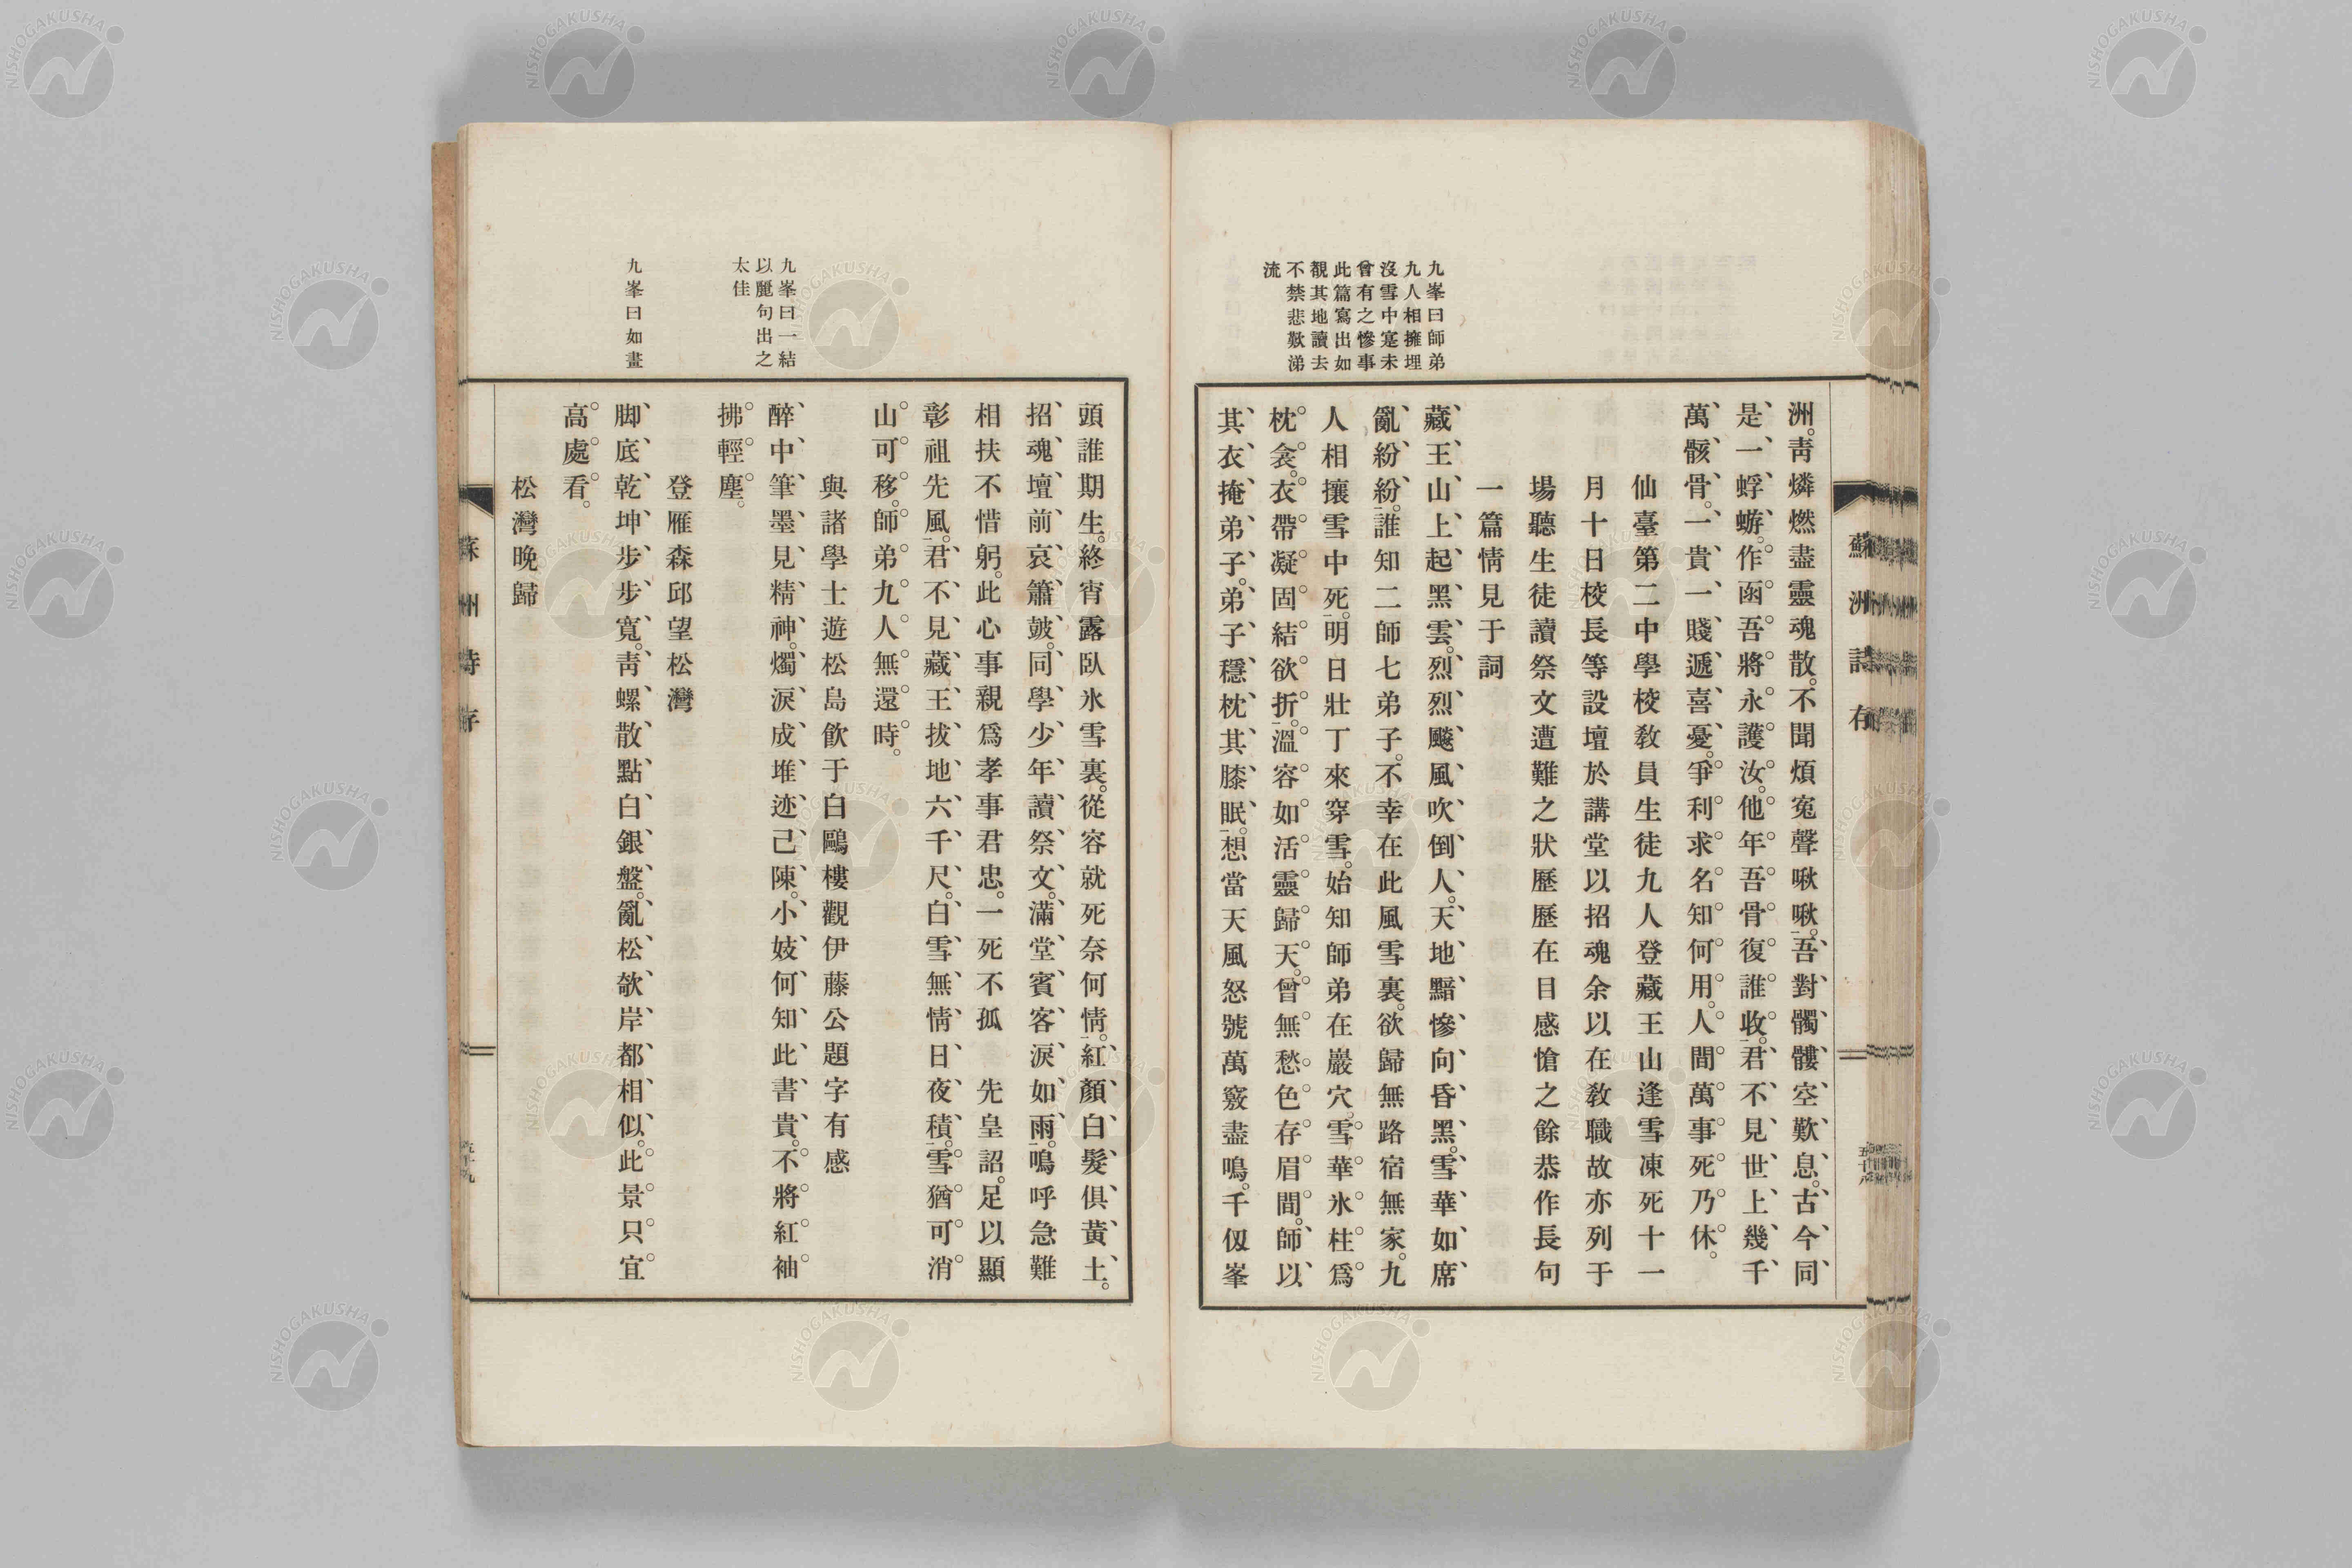 蘇洲詩存
五十八
洲。靑燐燃盡靈魂散。不聞煩寃聲啾啾。吾對髑髏空歎息。古今同
是一蜉蝣。作函吾將永護汝。他年吾骨復誰收。君不見世上幾千
萬骸骨。一貴一賤遞喜憂。爭利求名知何用。人間萬事死乃休。
仙臺第二中學校敎員生徒九人登藏王山逢雪凍死十一
月十日校長等設壇於講堂以招魂余以在敎職故亦列于
場聽生徒讀祭文遭難之狀歷歷在目感愴之餘恭作長句
一篇情見于詞
藏王山上起黑雲。烈烈飈風吹倒人。天地黯慘向昏黑。雪華如席
亂紛紛。誰知二師七弟子。不幸在此風雪裏。欲歸無路宿無家。九
人相攘雪中死。明日壯丁來穿雪。始知師弟在巖穴。雪華氷柱爲
枕衾。衣帶凝固結欲折。溫容如活靈歸天。曾無愁色存眉間。師以
其衣掩弟子。弟子穩枕其膝眠。想當天風怒號萬竅盡鳴。千仭峯
九峯曰師弟
九人相擁埋
沒雪中寔未
曾有之慘事
此篇寫出如
覩其地讀去
不禁悲歎涕
流
頭誰期生。終宵露臥氷雪裏。從容就死奈何情。紅顏白髮俱黃土。
招魂壇前哀簫皷。同學少年讀祭文。滿堂賓客淚如雨。鳴呼急難
相扶不惜躬。此心事親爲孝事君忠。一死不孤 先皇詔。足以顯
彰祖先風。君不見藏王拔地六千尺。白雪無情日夜積。雪猶可消
山可移。師弟九人無還時。
與諸學士遊松島飮于白鷗樓觀伊藤公題字有感
醉中筆墨見精神。燭淚成堆迹己陳。小妓何知此書貴。不將紅袖
拂輕塵。
登雁森邱望松灣
脚底乾坤步步寬。靑螺散點白銀盤。亂松欹岸都相似。此景只宜
高處看。
松灣晚歸
九峯曰一結
以麗句出之
太佳
九峯曰如畫